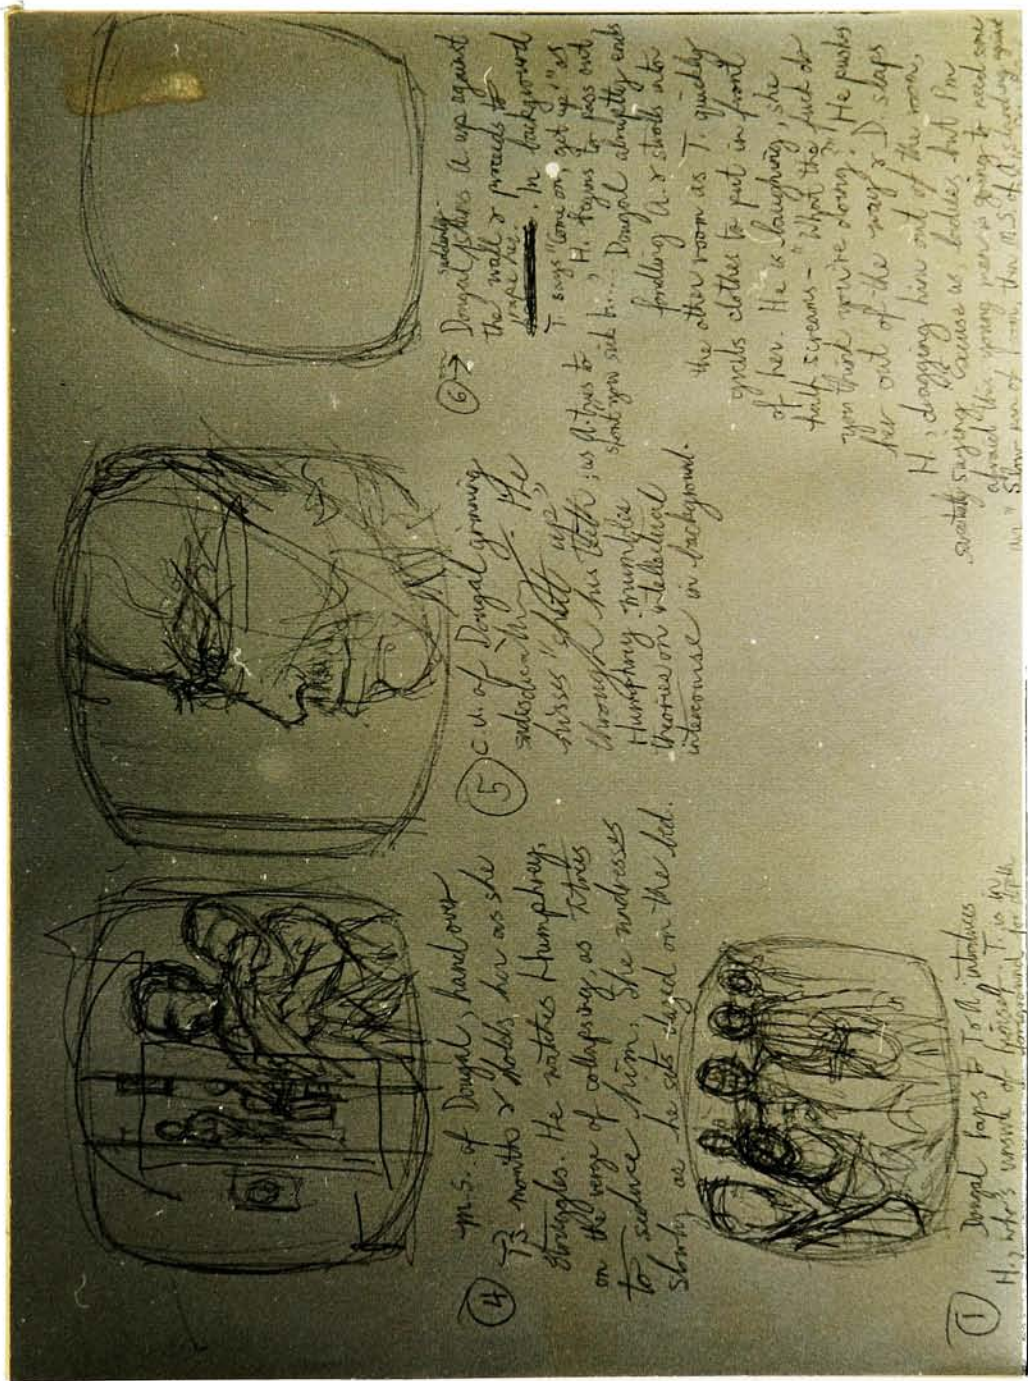 ④ M.S. of Dougal, hand over
T's mouth & holds her as she
struggles. He watches Humphrey,
on the verge of collapsing, as A tries
to seduce him. She undresses
slowly as he sits dazed on the bed.
⑤ C.U. of Dougal grinning
sadistically. He
hisses "shut up,"
through his teeth; as A. tries to
Humphrey mumbles
theories on intellectual
intercourse in background.
⑥ → suddenly
Dougal pushes A up against
the wall & proceeds to
rape her. In background
T. says "come on, get up" as
H. begins to pass out,
"don't you sick
Dougal abruptly ends
fondling A. & strolls into
the other room as T. quickly
grabs clothes to put in front
of her. He is laughing, she
half screams - "What the fuck do
you think you're doing?" He pushes
her out of the way & D. slaps
H, dragging him out of the room,
saying cause us ladies, but I'm
afraid this young man is going to need some
Show pan of room, then M.S. of A. standing against
① Dougal to T & A introduces
H., who's unsure of himself. T is in
foreground for depth